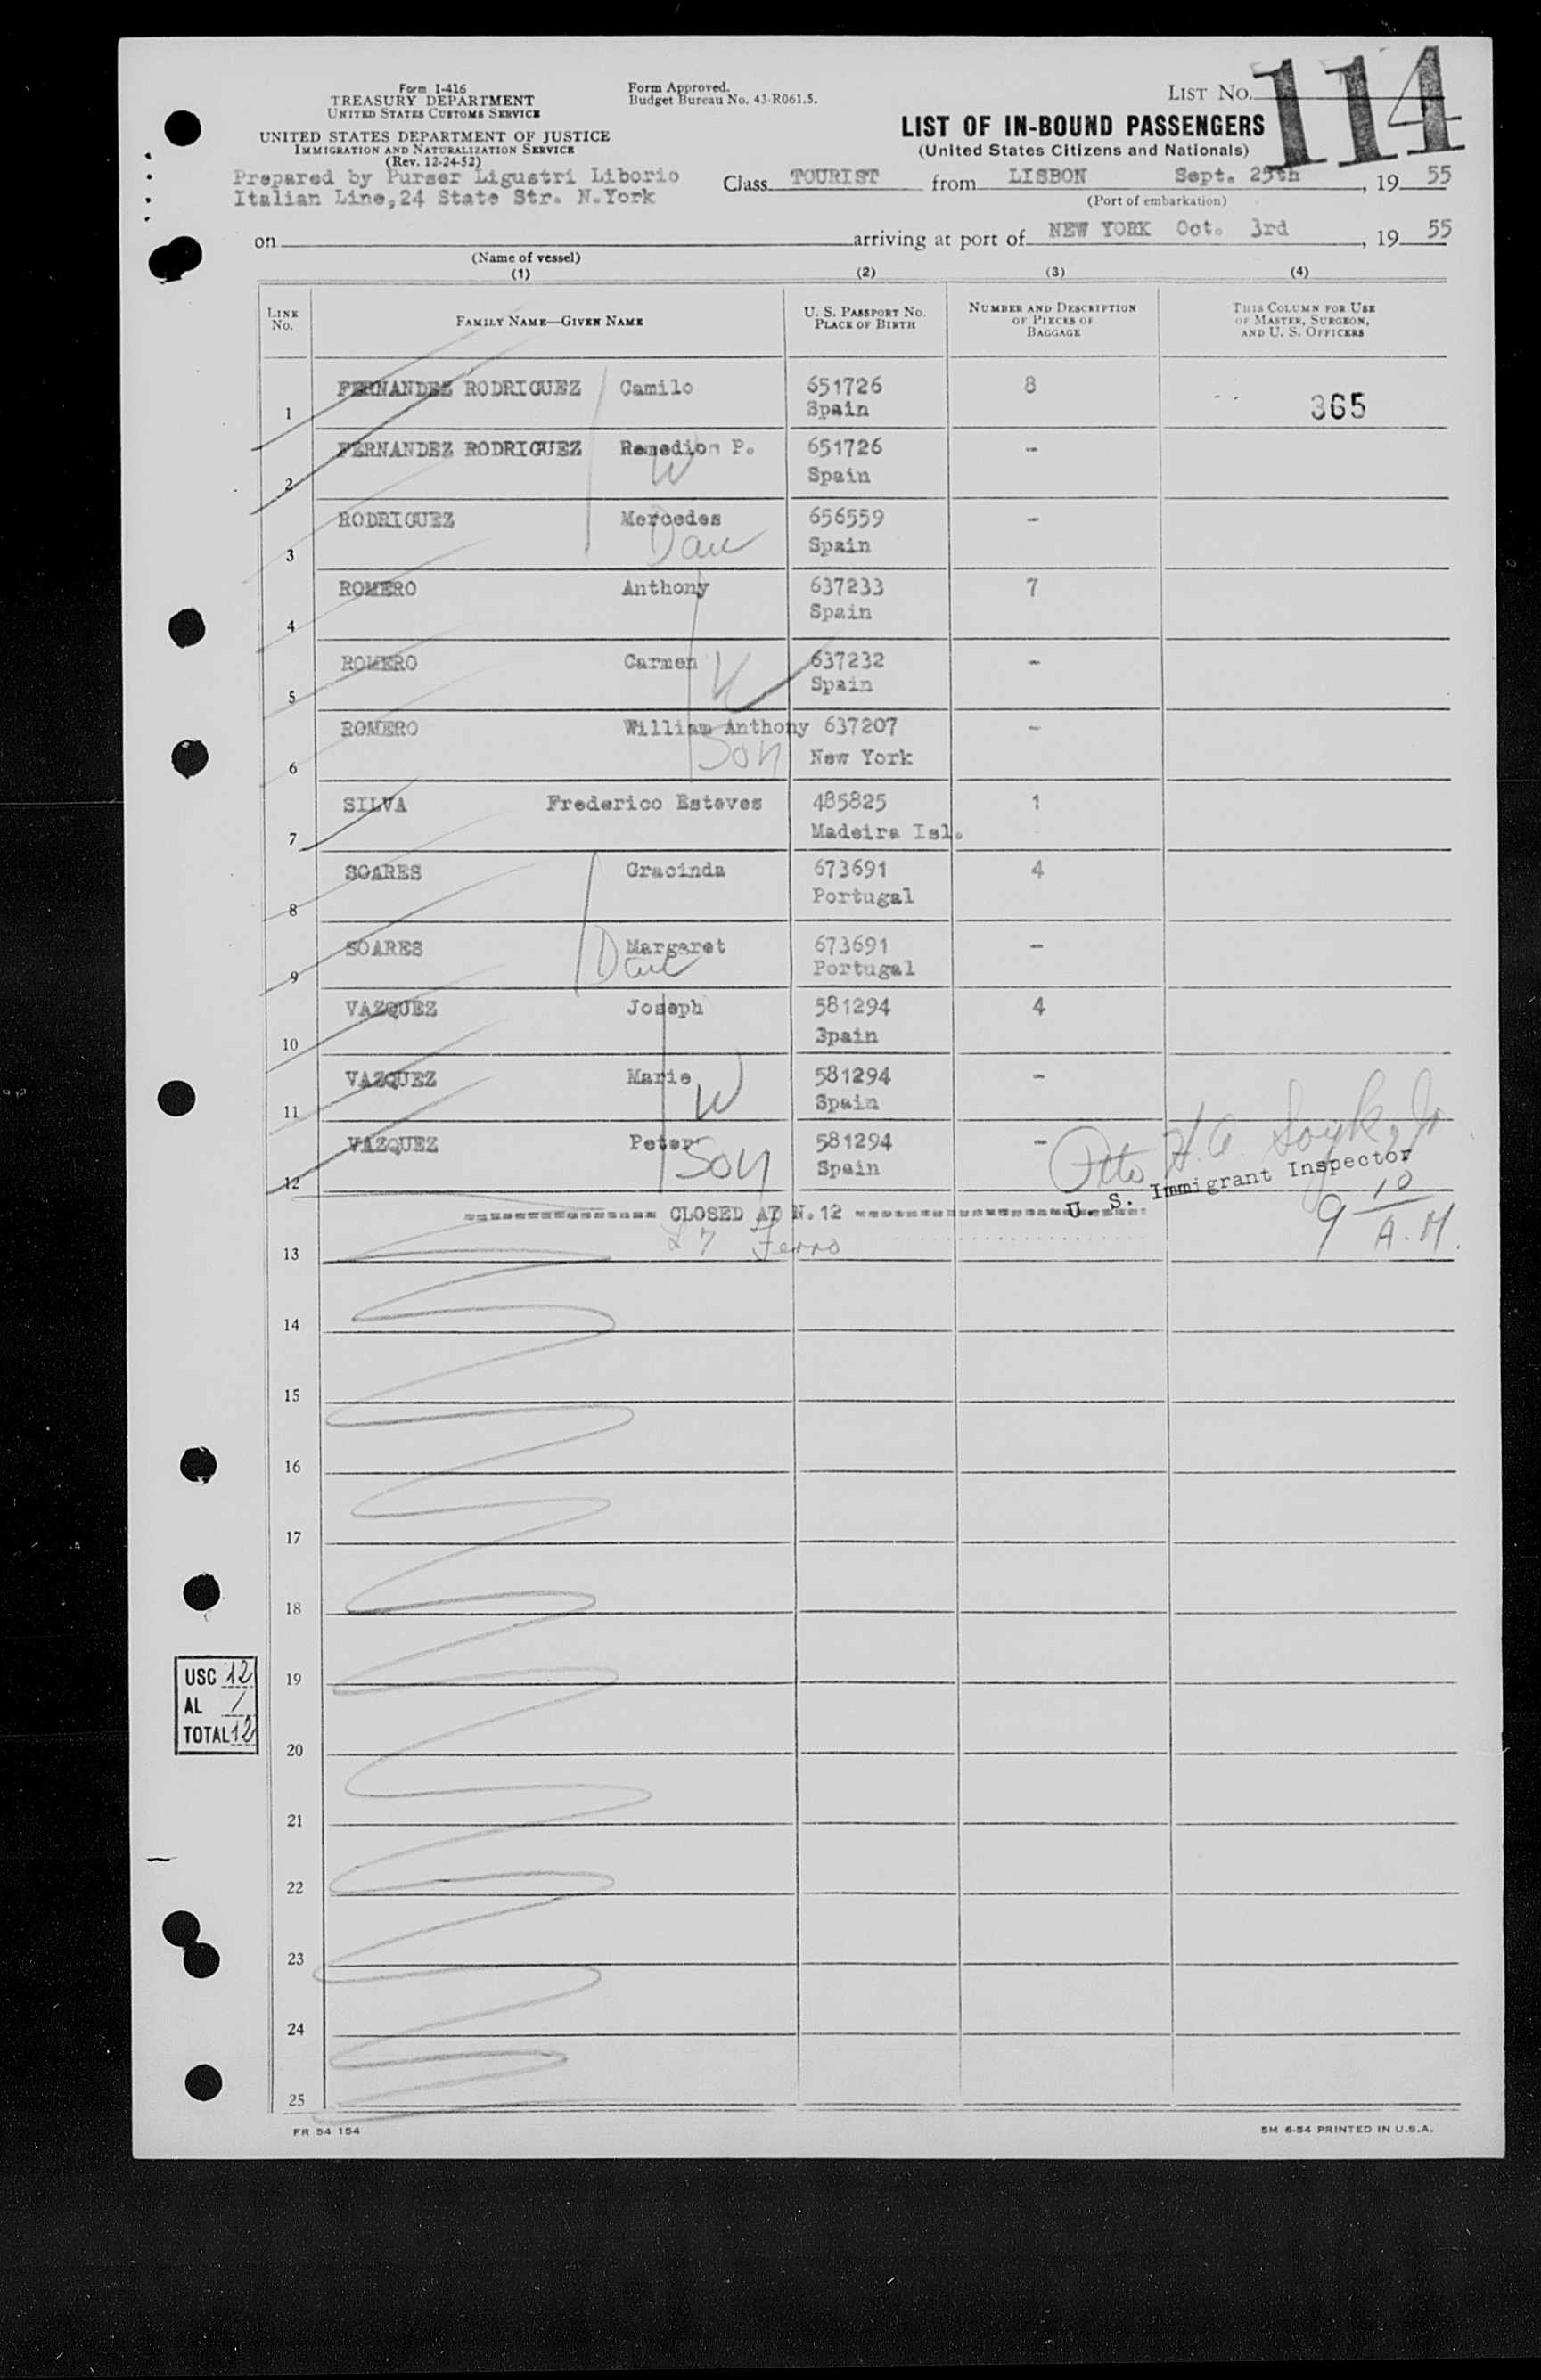 Form I-416
TREASURY DEPARTMENT
UNITED STATES CUSTOMS SERVICE
UNITED STATES DEPARTMENT OF JUSTICE
IMMIGRATION AND NATURALIZATION SERVICE
(Rev. 12-24-52)
Form Approved.
Budget Bureau No. 43-R061.5.
LIST No. 114
LIST OF IN-BOUND PASSENGERS
(United States Citizens and Nationals)
Prepared by Purser Ligustri Liborio
Italian Line,24 State Str. N.York
Class TOURIST from LISBON Sept. 25th, 19 55
(Port of embarkation)
on arriving at port of NEW YORK Oct. 3rd, 19 55
(Name of vessel)
(1) (2) (3) (4)
LINE No. FAMILY NAME—GIVEN NAME U. S. PASSPORT No. PLACE OF BIRTH NUMBER AND DESCRIPTION OF PIECES OF BAGGAGE THIS COLUMN FOR USE OF MASTER, SURGEON, AND U. S. OFFICERS
1 FERNANDEZ RODRIGUEZ Camilo 651726 8
Spain 365
2 FERNANDEZ RODRIGUEZ Remedios P. 651726 -
W Spain
3 RODRIGUEZ Mercedes 656559 -
Dau Spain
4 ROMERO Anthony 637233 7
Spain
5 ROMERO Carmen 637232 -
W Spain
6 ROMERO William Anthony 637207 -
Son New York
7 SILVA Frederico Esteves 485825 1
Madeira Isl.
8 SOARES Gracinda 673691 4
Portugal
9 SOARES Margaret 673691 -
Dau Portugal
10 VAZQUEZ Joseph 581294 4
Spain
11 VAZQUEZ Marie 581294 -
W Spain
12 VAZQUEZ Peter 581294 -
Son Spain
U. S. Immigrant Inspector
---------------- CLOSED AT N.12 ------------------------
9 10 A.M.
13 Ferro
14
15
16
17
18
19
20
21
22
23
24
25
USC 12
AL /
TOTAL 12
FR 54 154
5M 6-54 PRINTED IN U.S.A.